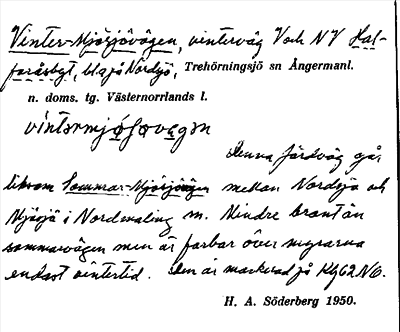 Vinter-Mjösjövägen, winterväg V och NV Hal-
foråsbgt, bl. a på Nordsjö, Trehörningsjö sn Ångermanl.
n. doms. tg. Västernorrlands l.
Denna färdväg går
liksom Sommar-Mjösjövägen mellan Nordsjö och
Mjösjö i Nordmaling sn. Mindre brant än
sommarvägen men är farbar över myrarna
endast vintertid. Den är markerad på Kbl 62 NO.
H. A. Söderberg 1950.